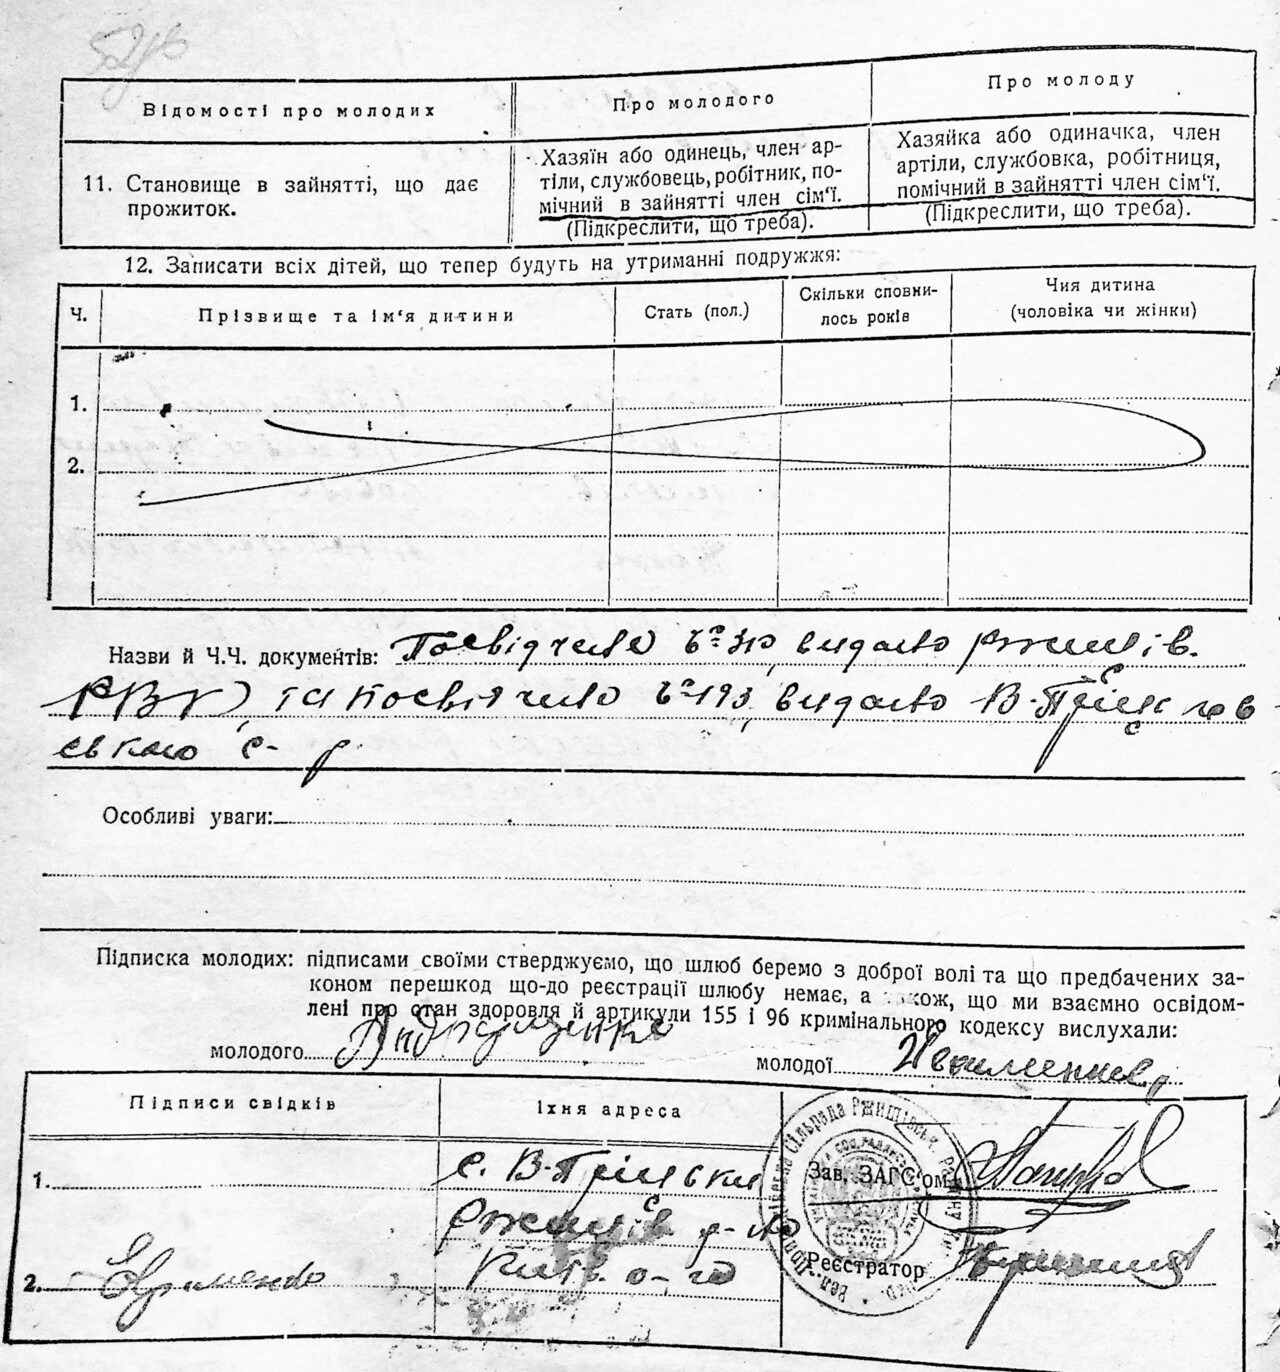 Відомості про молодих
Про молодого
Про молоду
11. Становище в зайнятті, що дає
прожиток.
Хазяїн або одинець, член ар-
тіли, службовець, робітник, по-
мічний в зайнятті член сім'ї.
(Підкреслити, що треба).
Хазяйка або одиначка, член
артіли, службовка, робітниця,
помічний в зайнятті член сім'ї.
(Підкреслити, що треба).
12. Записати всіх дітей, що тепер будуть на утриманні подружжя:
Ч.
Прізвище та ім'я дитини
Стать (пол.)
Скільки сповни-
лось років
Чия дитина
(чоловіка чи жінки)
1.
2.
Назви й Ч.Ч. документів: Посвідчено видано Ржищів.
РВК та посвідчено 193 видано В-Пріцьков
ського с-р
Особливі уваги:
Підписка молодих: підписами своїми стверджуємо, що шлюб беремо з доброї волі та що предбачених за-
коном перешкод що-до реєстрації шлюбу немає, а також, що ми взаємно освідом-
лені про стан здоровля й артикули 155 і 96 кримінального кодексу вислухали:
молодого Андрущенко
молодої
Підписи свідків
Їхня адреса
1.
с. В-Пріцьки
Зав. ЗАГС'ом
Ржищів р-но
2. Єфименко
Київ. о-го
Реєстратор